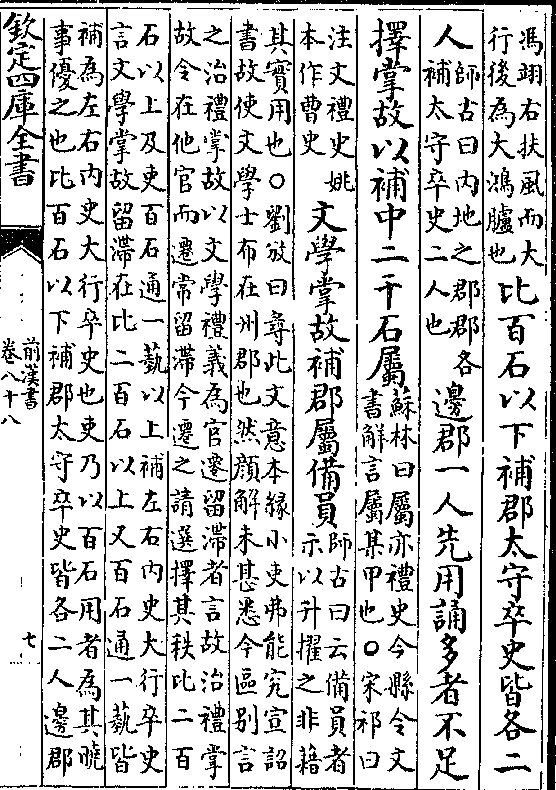 馮翊右扶風而大
行後為大鴻臚也
比百石以下補郡太守卒史皆各二
人
師古曰内地之郡郡各
補太守卒史二人也
邊郡一人先用誦多者不足
擇掌故以補中二千石屬
蘇林曰屬亦禮史今縣令文
書解言屬某甲也○宋祁曰
注文禮史姚
本作曹史
文學掌故補郡屬備員
師古曰云備員者
示以升擢之非籍
其實用也○劉攽曰尋此文意本緣小吏弗能究宣詔
書故使文學士布在州郡也然顏解未甚悉今區別言
之治禮掌故以文學禮義為官遷留滯者言故治禮掌
故令在他官而遷常留滯今遷之請選擇其秩比二百
石以上及吏百石通一藝以上補左右内史大行卒史
言文學掌故留滯在比二百石以上又百石通一藝皆
補為左右内史大行卒史也吏乃以百石用者為其曉
事優之也比百石以下補郡太守卒史皆各二人邊郡
欽定四庫全書
前漢書
卷八十八
七